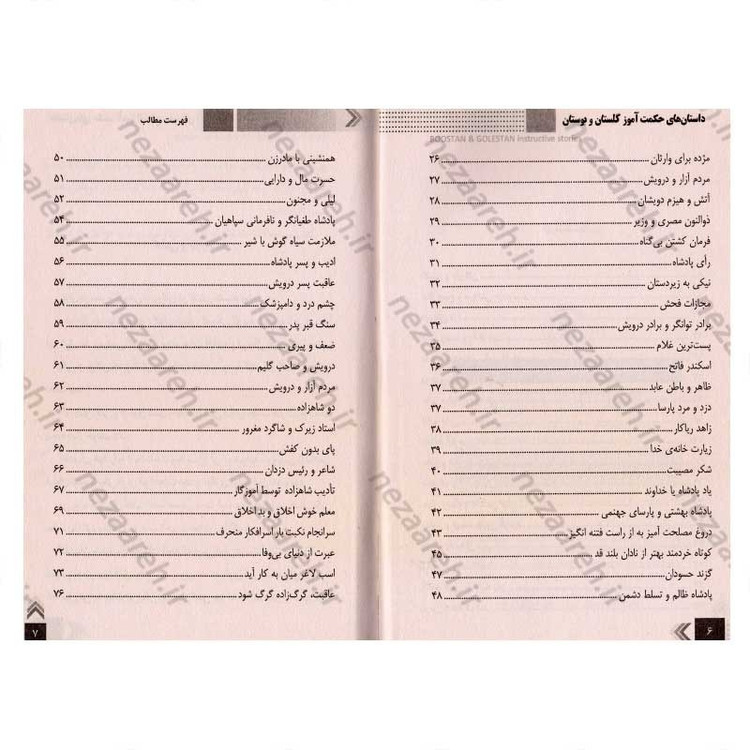 داستان‌های حکمت آموز گلستان و بوستان
BOOSTAN & GOLESTAN instructive stories
مژده برای وارثان ۲۶
مردم آزار و درویش ۲۷
آتش و هیزم درویشان ۲۸
ذوالنون مصری و وزیر ۲۹
فرمان کشتن بی‌گناه ۳۰
رأی پادشاه ۳۱
نیکی به زیردستان ۳۲
مجازات فحش ۳۳
برادر توانگر و برادر درویش ۳۴
پست‌ترین غلام ۳۵
اسکندر فاتح ۳۶
ظاهر و باطن عابد ۳۷
دزد و مرد پارسا ۳۷
زاهد ریاکار ۳۸
زیارت خانه‌ی خدا ۳۹
شکر مصیبت ۴۰
یاد پادشاه یا خداوند ۴۱
پادشاه بهشتی و پارسای جهنمی ۴۲
دروغ مصلحت آمیز به از راست فتنه انگیز ۴۳
کوتاه خردمند بهتر از نادان بلند قد ۴۵
گزند حسودان ۴۷
پادشاه ظالم و تسلط دشمن ۴۸
۶
فهرست مطالب
همنشینی با مادرزن ۵۰
حسرت مال و دارایی ۵۱
لیلی و مجنون ۵۲
پادشاه طغیانگر و نافرمانی سپاهیان ۵۴
ملازمت سیاه گوش با شیر ۵۵
ادیب و پسر پادشاه ۵۶
عاقبت پسر درویش ۵۷
چشم درد و دامپزشک ۵۸
سنگ قبر پدر ۵۹
ضعف و پیری ۶۰
درویش و صاحب گلیم ۶۱
مردم آزار و درویش ۶۲
دو شاهزاده ۶۳
استاد زیرک و شاگرد مغرور ۶۴
پای بدون کفش ۶۵
شاعر و رئیس دزدان ۶۶
تأدیب شاهزاده توسط آموزگار ۶۷
معلم خوش اخلاق و بد اخلاق ۶۹
سرانجام نکبت بار اسرافکار منحرف ۷۱
عبرت از دنیای بی‌وفا ۷۲
اسب لاغر میان به کار آید ۷۳
عاقبت، گرگ‌زاده گرگ شود ۷۶
۷
nezaareh.ir